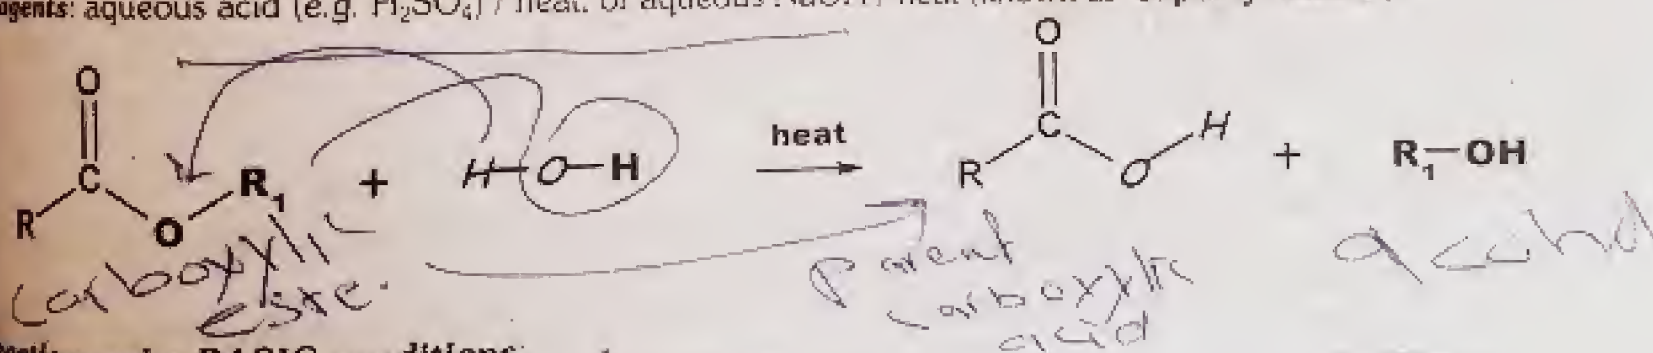 agents: aqueous acid (e.g. H₂SO₄) / heat. or aqueous
O
C
R
O
R₁
+
H-O-H
heat
O
C
R
O
H
+
R₁-OH
carboxylic
este.
Parent
carboxylic
acid
alcohol
BASIC